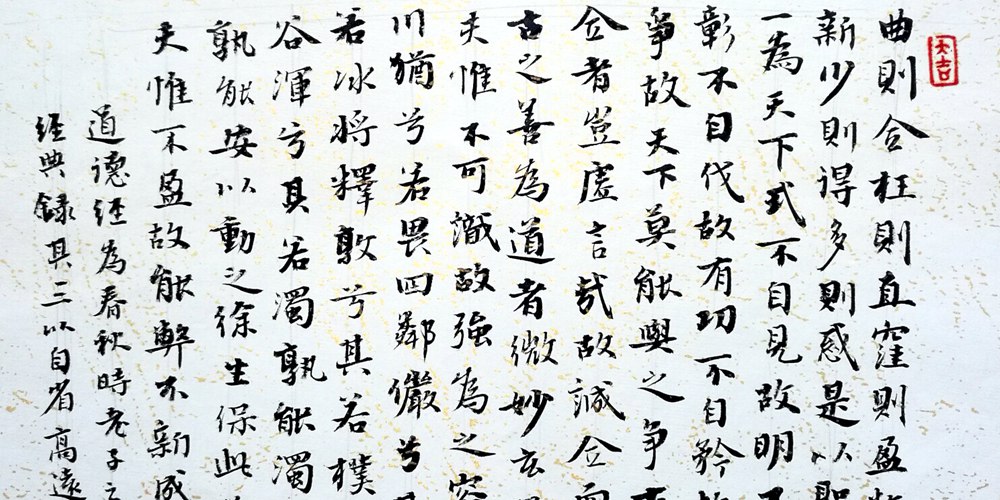 大吉
曲則全枉則直窪則盈
新少則得多則惑是以聖
一為天下式不自見故明不
彰不自伐故有功不自矜
爭故天下莫能與之爭
全者豈虛言哉故誠全而
古之善為道者微妙玄
夫惟不可識故強為之容
川猶兮若畏四鄰儼兮
若冰將釋敦兮其若樸
谷渾兮其若濁孰能濁
孰能安以動之徐生保此
夫惟不盈故能弊不新成
道德經為春秋時老子之
經典錄其三以自省高遠